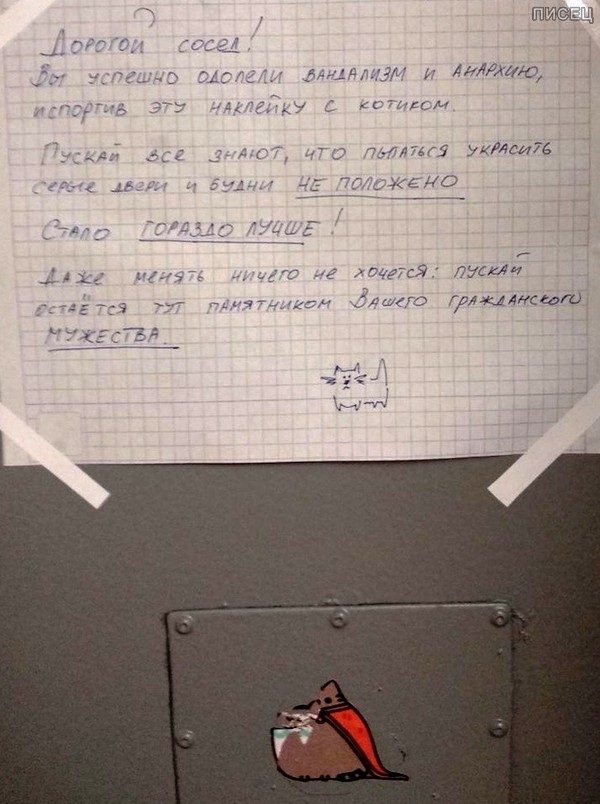 ПИСЕЦ
Дорогой сосед!
Вы успешно одолели вандализм и анархию,
испортив эту наклейку с котиком.
Пускай все знают, что пытаться украсить
серые двери и будни НЕ ПОЛОЖЕНО
Стало ГОРАЗДО ЛУЧШЕ!
Даже менять ничего не хочется: пускай
остаётся тут памятником Вашего гражданского
МУЖЕСТВА.